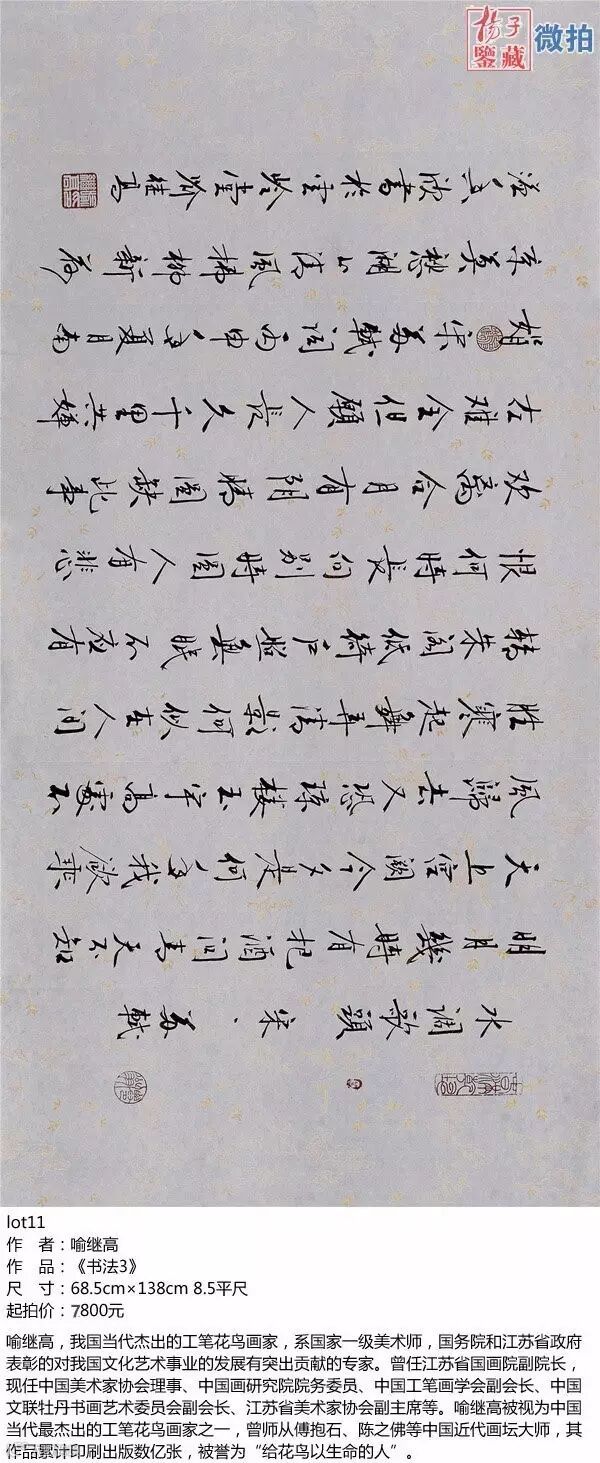 扬子
鑒藏
微拍
水调歌頭 宋·苏軾
明月幾時有把酒问青天不知
天上宫阙今夕是何年我欲乘
風歸去又恐琼楼玉宇高處不
胜寒起舞弄清影何似在人间
转朱阁低绮户照無眠不应有
恨何時長向别時圆人有悲
欢离合月有阴晴圆缺此事
古难全但願人長久千里共婵
娟 宋苏軾词 丙申年夏月南
京莫愁湖上清風拂柳新荷
溢香欣書於雲岭堂喻继高
lot11
作 者：喻继高
作 品：《书法3》
尺 寸：68.5cm×138cm 8.5平尺
起拍价：7800元
喻继高，我国当代杰出的工笔花鸟画家，系国家一级美术师，国务院和江苏省政府
表彰的对我国文化艺术事业的发展有突出贡献的专家。曾任江苏省国画院副院长，
现任中国美术家协会理事、中国画研究院院务委员、中国工笔画学会副会长、中国
文联牡丹书画艺术委员会副会长、江苏省美术家协会副主席等。喻继高被视为中国
当代最杰出的工笔花鸟画家之一，曾师从傅抱石、陈之佛等中国近代画坛大师，其
作品累计印刷出版数亿张，被誉为“给花鸟以生命的人”。